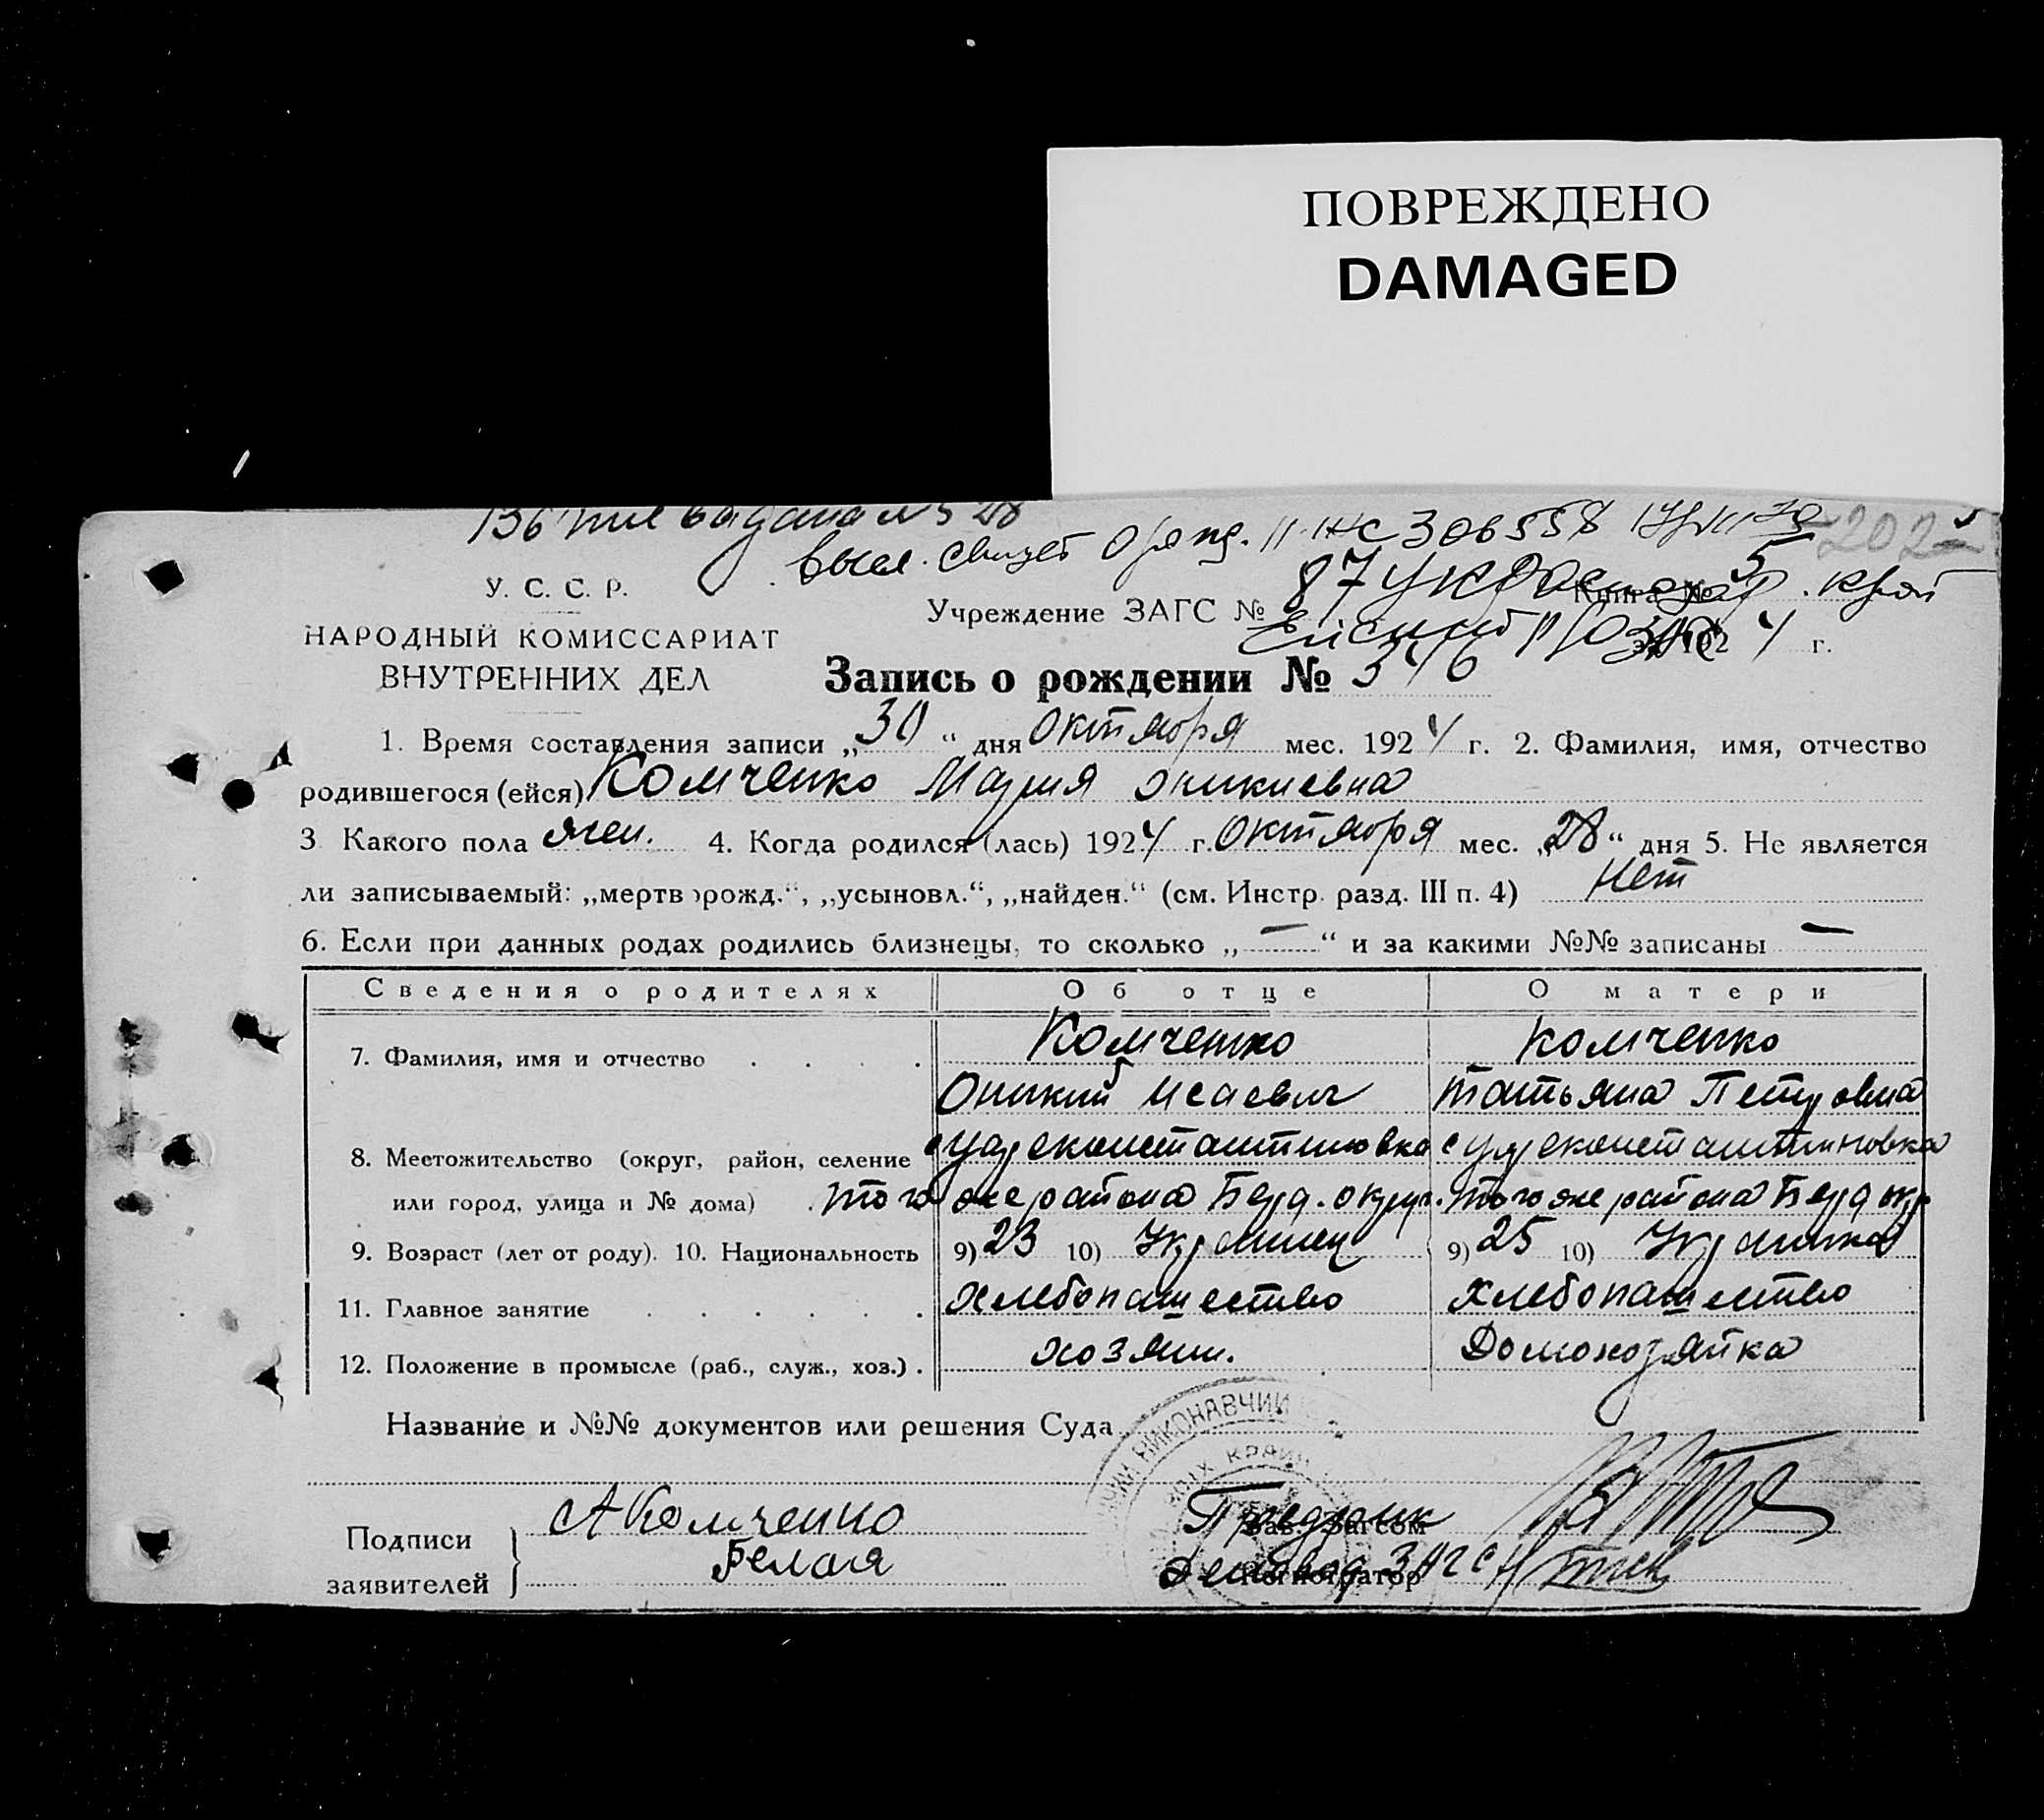 ПОВРЕЖДЕНО
DAMAGED
выдана № 28
Выс. свидет. о рожд. II-ЖС 306558
202
У. С. С. Р.
Учреждение ЗАГС № 87 Книга № 5 край
НАРОДНЫЙ КОМИССАРИАТ
ВНУТРЕННИХ ДЕЛ
за 192 4 г.
Запись о рождении № 346
1. Время составления записи „30“ дня Октября мес. 1924 г. 2. Фамилия, имя, отчество
родившегося (ейся) Комченко Мария Оникиевна
3 Какого пола жен. 4. Когда родился (лась) 1924 г. Октября мес. „28“ дня 5. Не является
ли записываемый: „мертворожд.“, „усыновл.“, „найден.“ (см. Инстр. разд. III п. 4) Нет
6. Если при данных родах родились близнецы, то сколько „—“ и за какими №№ записаны —
Сведения о родителях Об отце О матери
7. Фамилия, имя и отчество . . . . Комченко Комченко
Оникий Исаевич Татьяна Петровна
8. Местожительство (округ, район, селение с Цареконстантиновка с Цареконстантиновка
или город, улица и № дома) . того же района Берд. округ. того же района Берд окр
9. Возраст (лет от роду). 10. Национальность 9) 23 10) Украинец 9) 25 10) Украинка
11. Главное занятие . . . . . хлебопашество хлебопашество
12. Положение в промысле (раб., служ., хоз.) . хозяин. Домохозяйка
Название и №№ документов или решения Суда
ВИКОНАВЧИЙ
Подписи
заявителей
АКомченко
Белая
Предрик
Зав. Загсом
Деловод ЗАГС
Регистратор